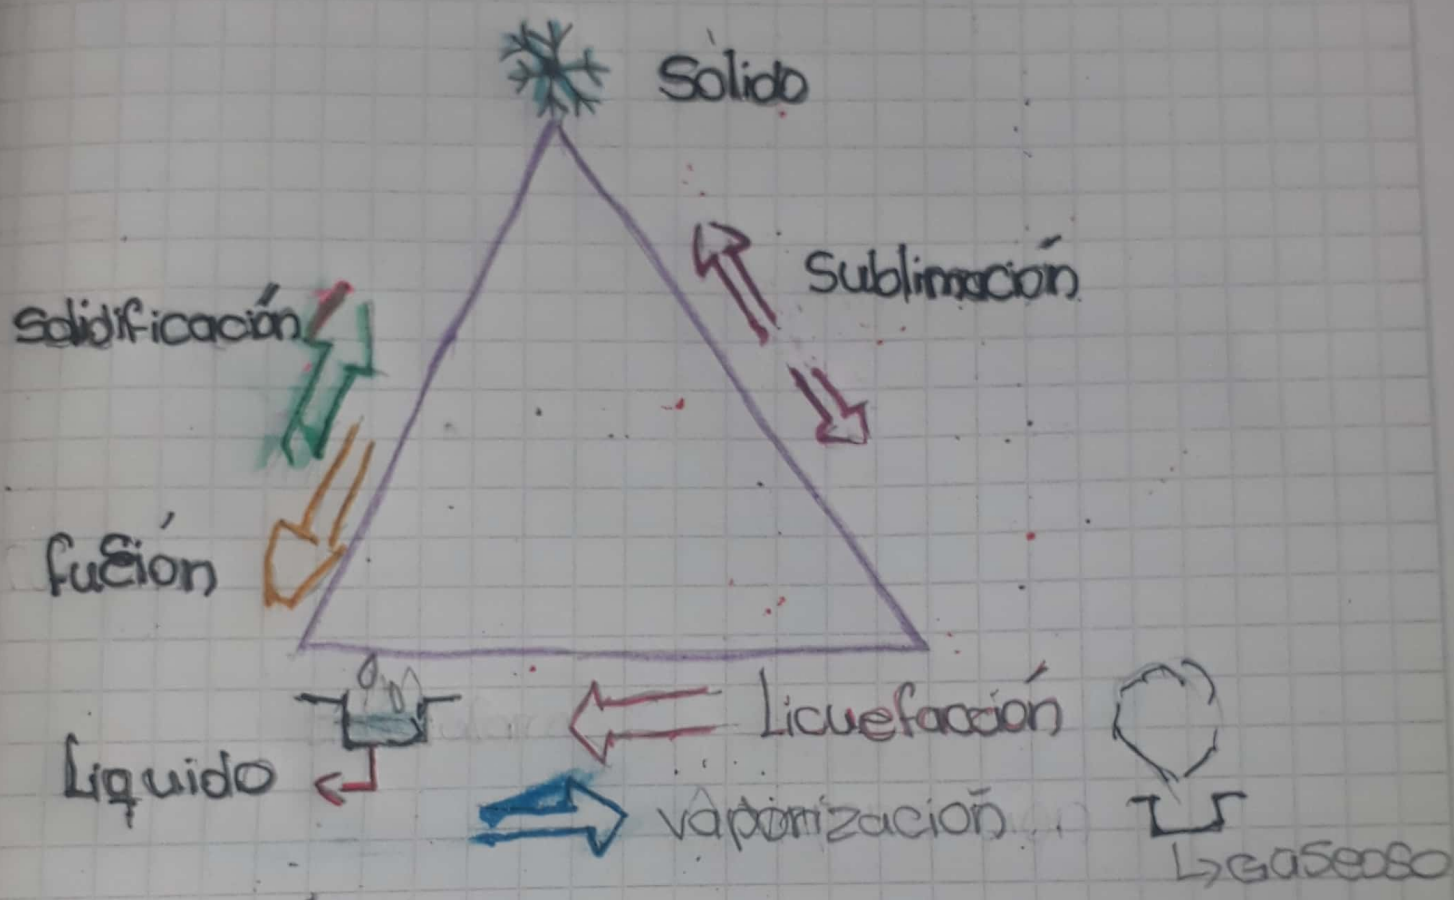 Sólido
Sublimación
Solidificación
fusión
Licuefacción
Liquido
vaporización
Gaseoso